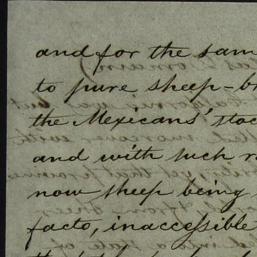 and for the sam
to pure sheep-br
the Mexicans' stoc
and with such r
now sheep being
facto, inaccessible